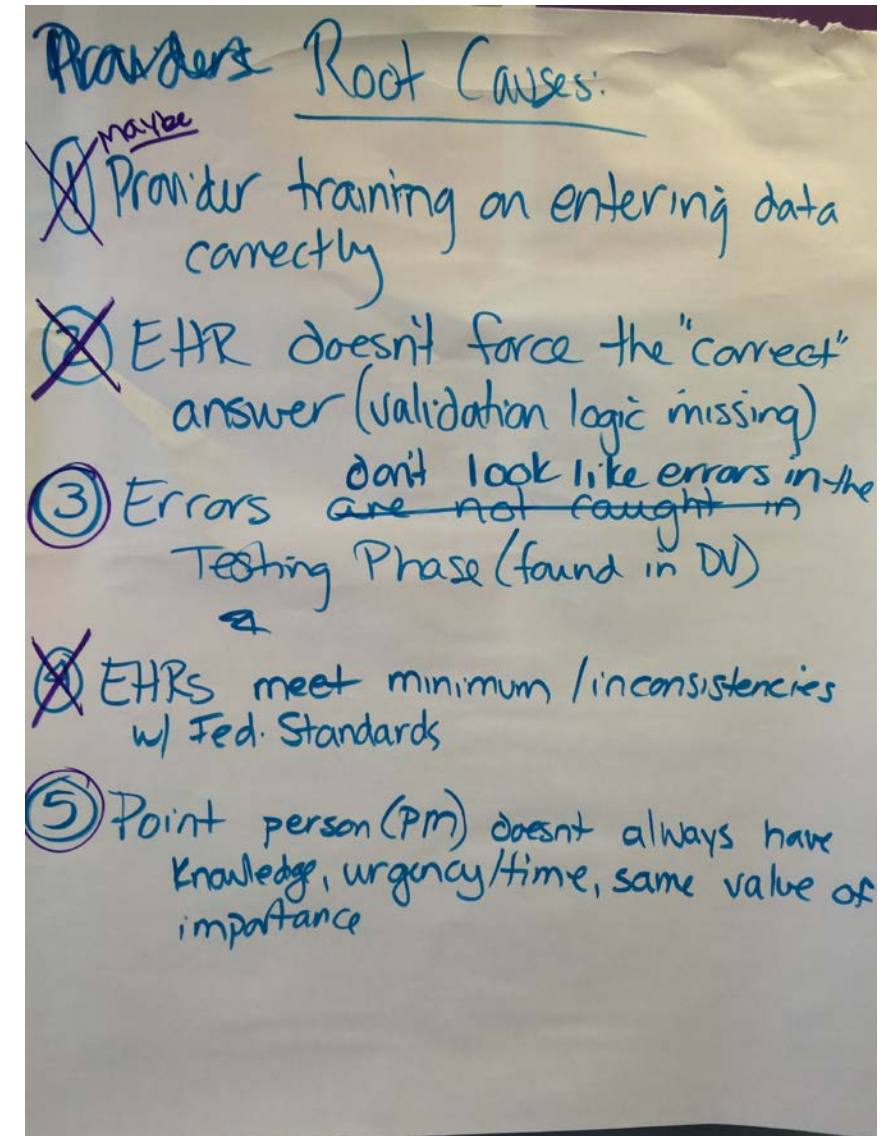 Providers Root Causes:
maybe
1 Provider training on entering data
correctly
2 EHR doesn't force the "correct"
answer (validation logic missing)
don't look like errors in the
3 Errors are not caught in
Testing Phase (found in DV)
4 EHRs meet minimum / inconsistencies
w/ Fed. Standards
5 Point person (PM) doesnt always have
knowledge, urgency/time, same value of
importance